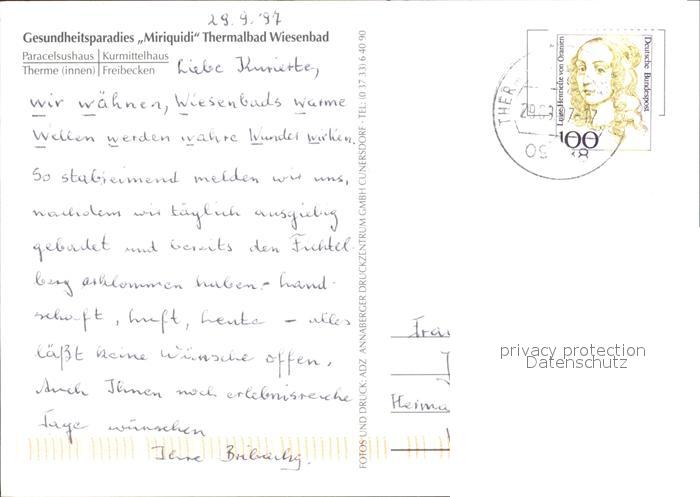 29.9.97
Gesundheitsparadies „Miriquidi“ Thermalbad Wiesenbad
Paracelsushaus | Kurmittelhaus
Therme (innen) | Freibecken
Liebe
wir wähnen, Wiesenbads warme
Wellen werden wahre Wunder wirken.
So stabreimend melden wir uns,
nachdem wir täglich ausgiebig
gebadet und bereits den Fichtel-
berg erklommen haben. Land-
schaft, Luft, Leute – alles
läßt keine Wünsche offen.
Auch Ihnen noch erlebnisreiche
Tage wünschen
Ihre
FOTOS UND DRUCK: ADZ ANNABERGER DRUCKZENTRUM GMBH CUNERSDORF · TEL: (0 37 33) 6 40 90
Luise Henriette von Oranien
Deutsche Bundespost
100
THER
09
Frau
Heima
privacy protection
Datenschutz